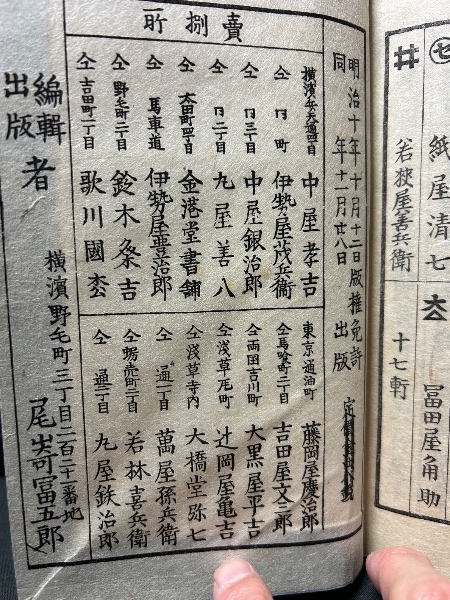 ㋲
紙屋清七
井
若狭屋善兵衛
冨田屋角助
十七軒
明治十年十月十二日版権免許
同年十一月廿八日出版
定價
賣捌所
横濱弁天通四丁目 中屋孝吉
仝 〃町 伊勢屋茂兵衛
仝 〃三丁目 中屋銀治郎
仝 〃二丁目 丸屋善八
仝 太田町四丁目 金港堂書舗
仝 馬車道 伊勢屋豊治郎
仝 野毛町二丁目 鈴木粂吉
仝 吉田町一丁目 歌川國枩
東京通油町 藤岡屋慶治郎
仝馬喰町二丁目 吉田屋文三郎
仝両国吉川町 大黒屋平吉
仝浅草瓦町 辻岡屋亀吉
仝浅草寺内 大橋堂弥七
仝通一丁目 萬屋孫兵衛
仝蛎売町二丁目 若林喜兵衛
仝通二丁目 丸屋鉄治郎
編輯出版者
横濱野毛町三丁目二百二十三番地
尾嵜冨五郎